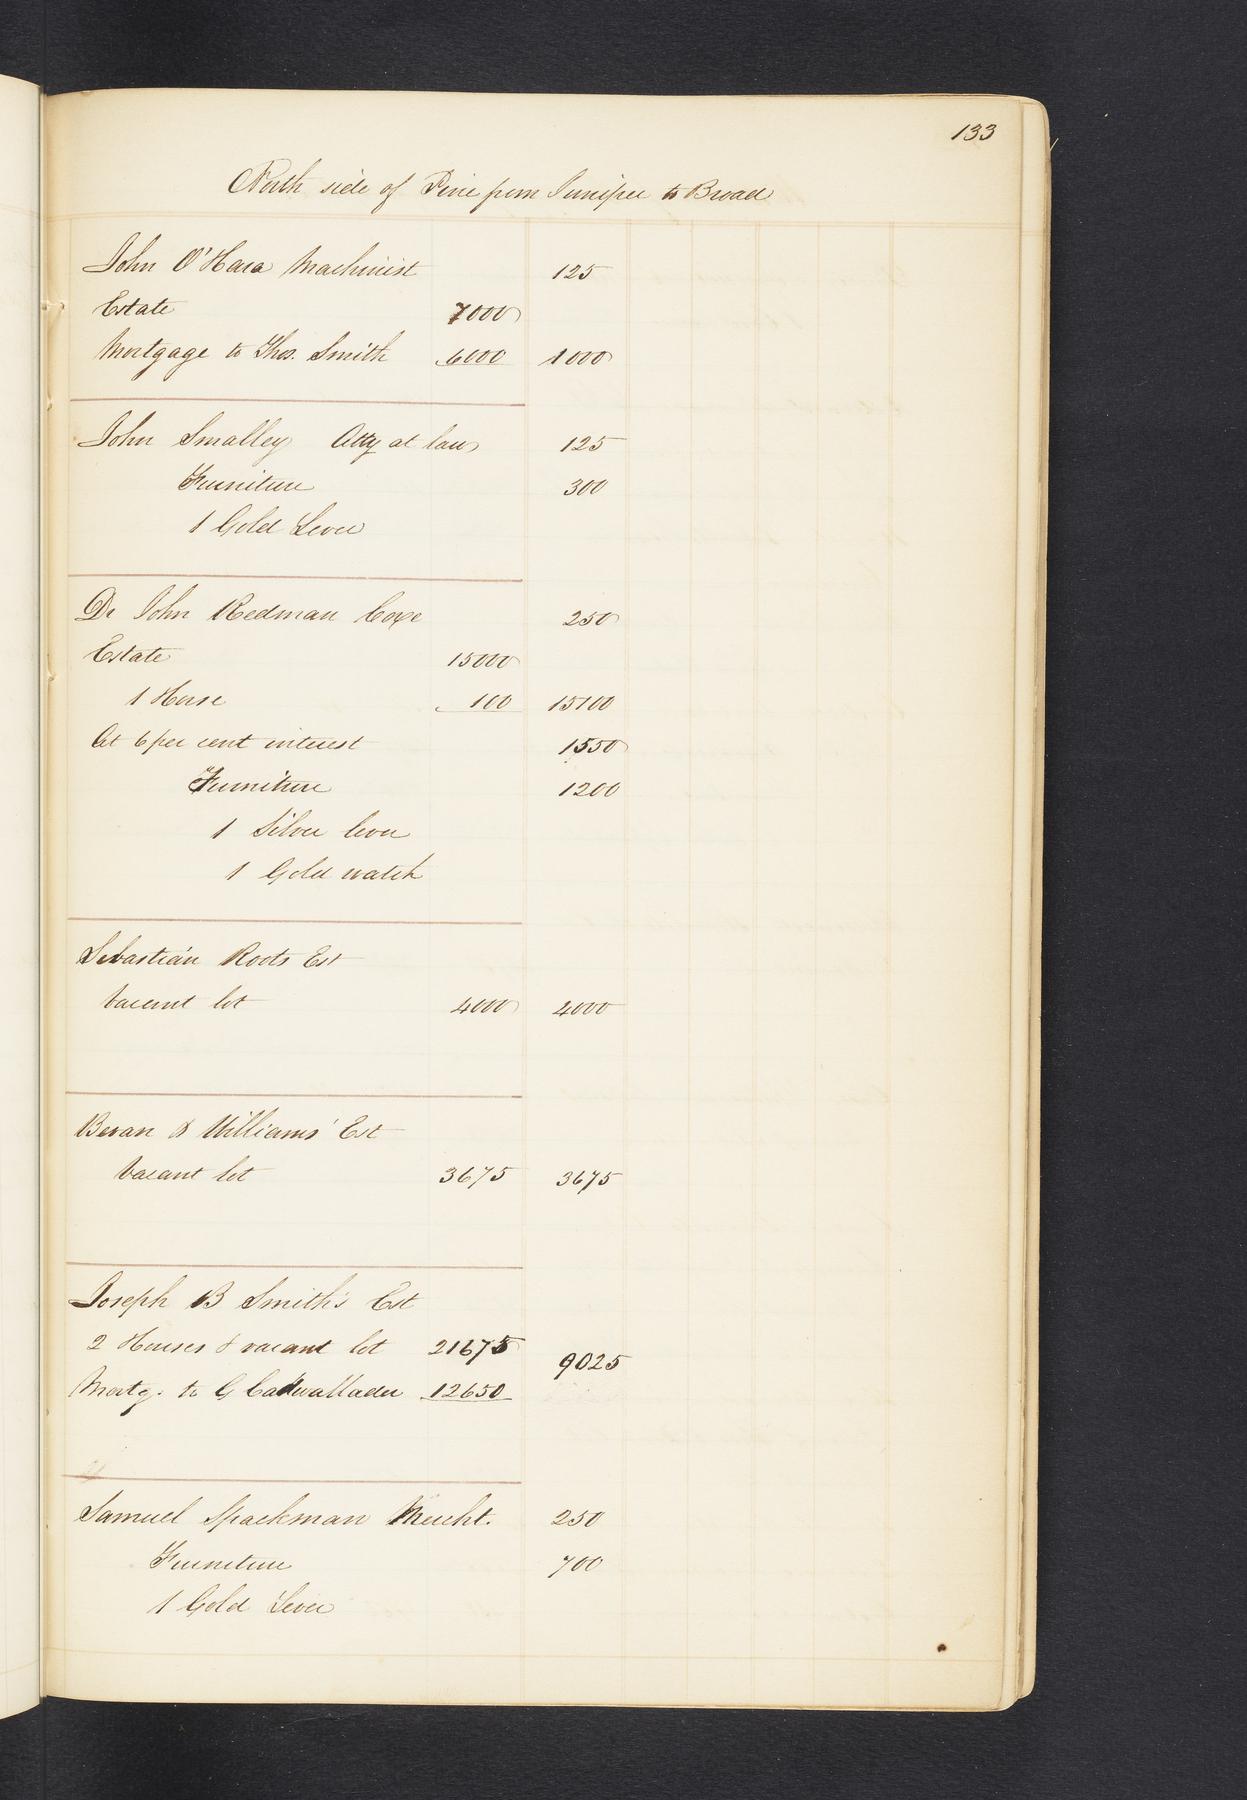 133
North side of Pine from Juniper to Broad
John O'Hara Machinist 125
Estate 7000
Mortgage to Thos. Smith 6000 1000
John Smalley Atty at law 125
Furniture 300
1 Gold Lever
Dr John Redman Coxe 250
Estate 15000
1 Horse 100 15100
At 6 per cent interest 1550
Furniture 1200
1 Silver lever
1 Gold watch
Sebastian Roots Est
Vacant lot 4000 4000
Bevan & Williams' Est
Vacant lot 3675 3675
Joseph B Smith's Est
2 Houses & vacant lot 21675 9025
Mortg. to G Cadwallader 12650
Samuel Spackman Mercht. 250
Furniture 700
1 Gold Lever